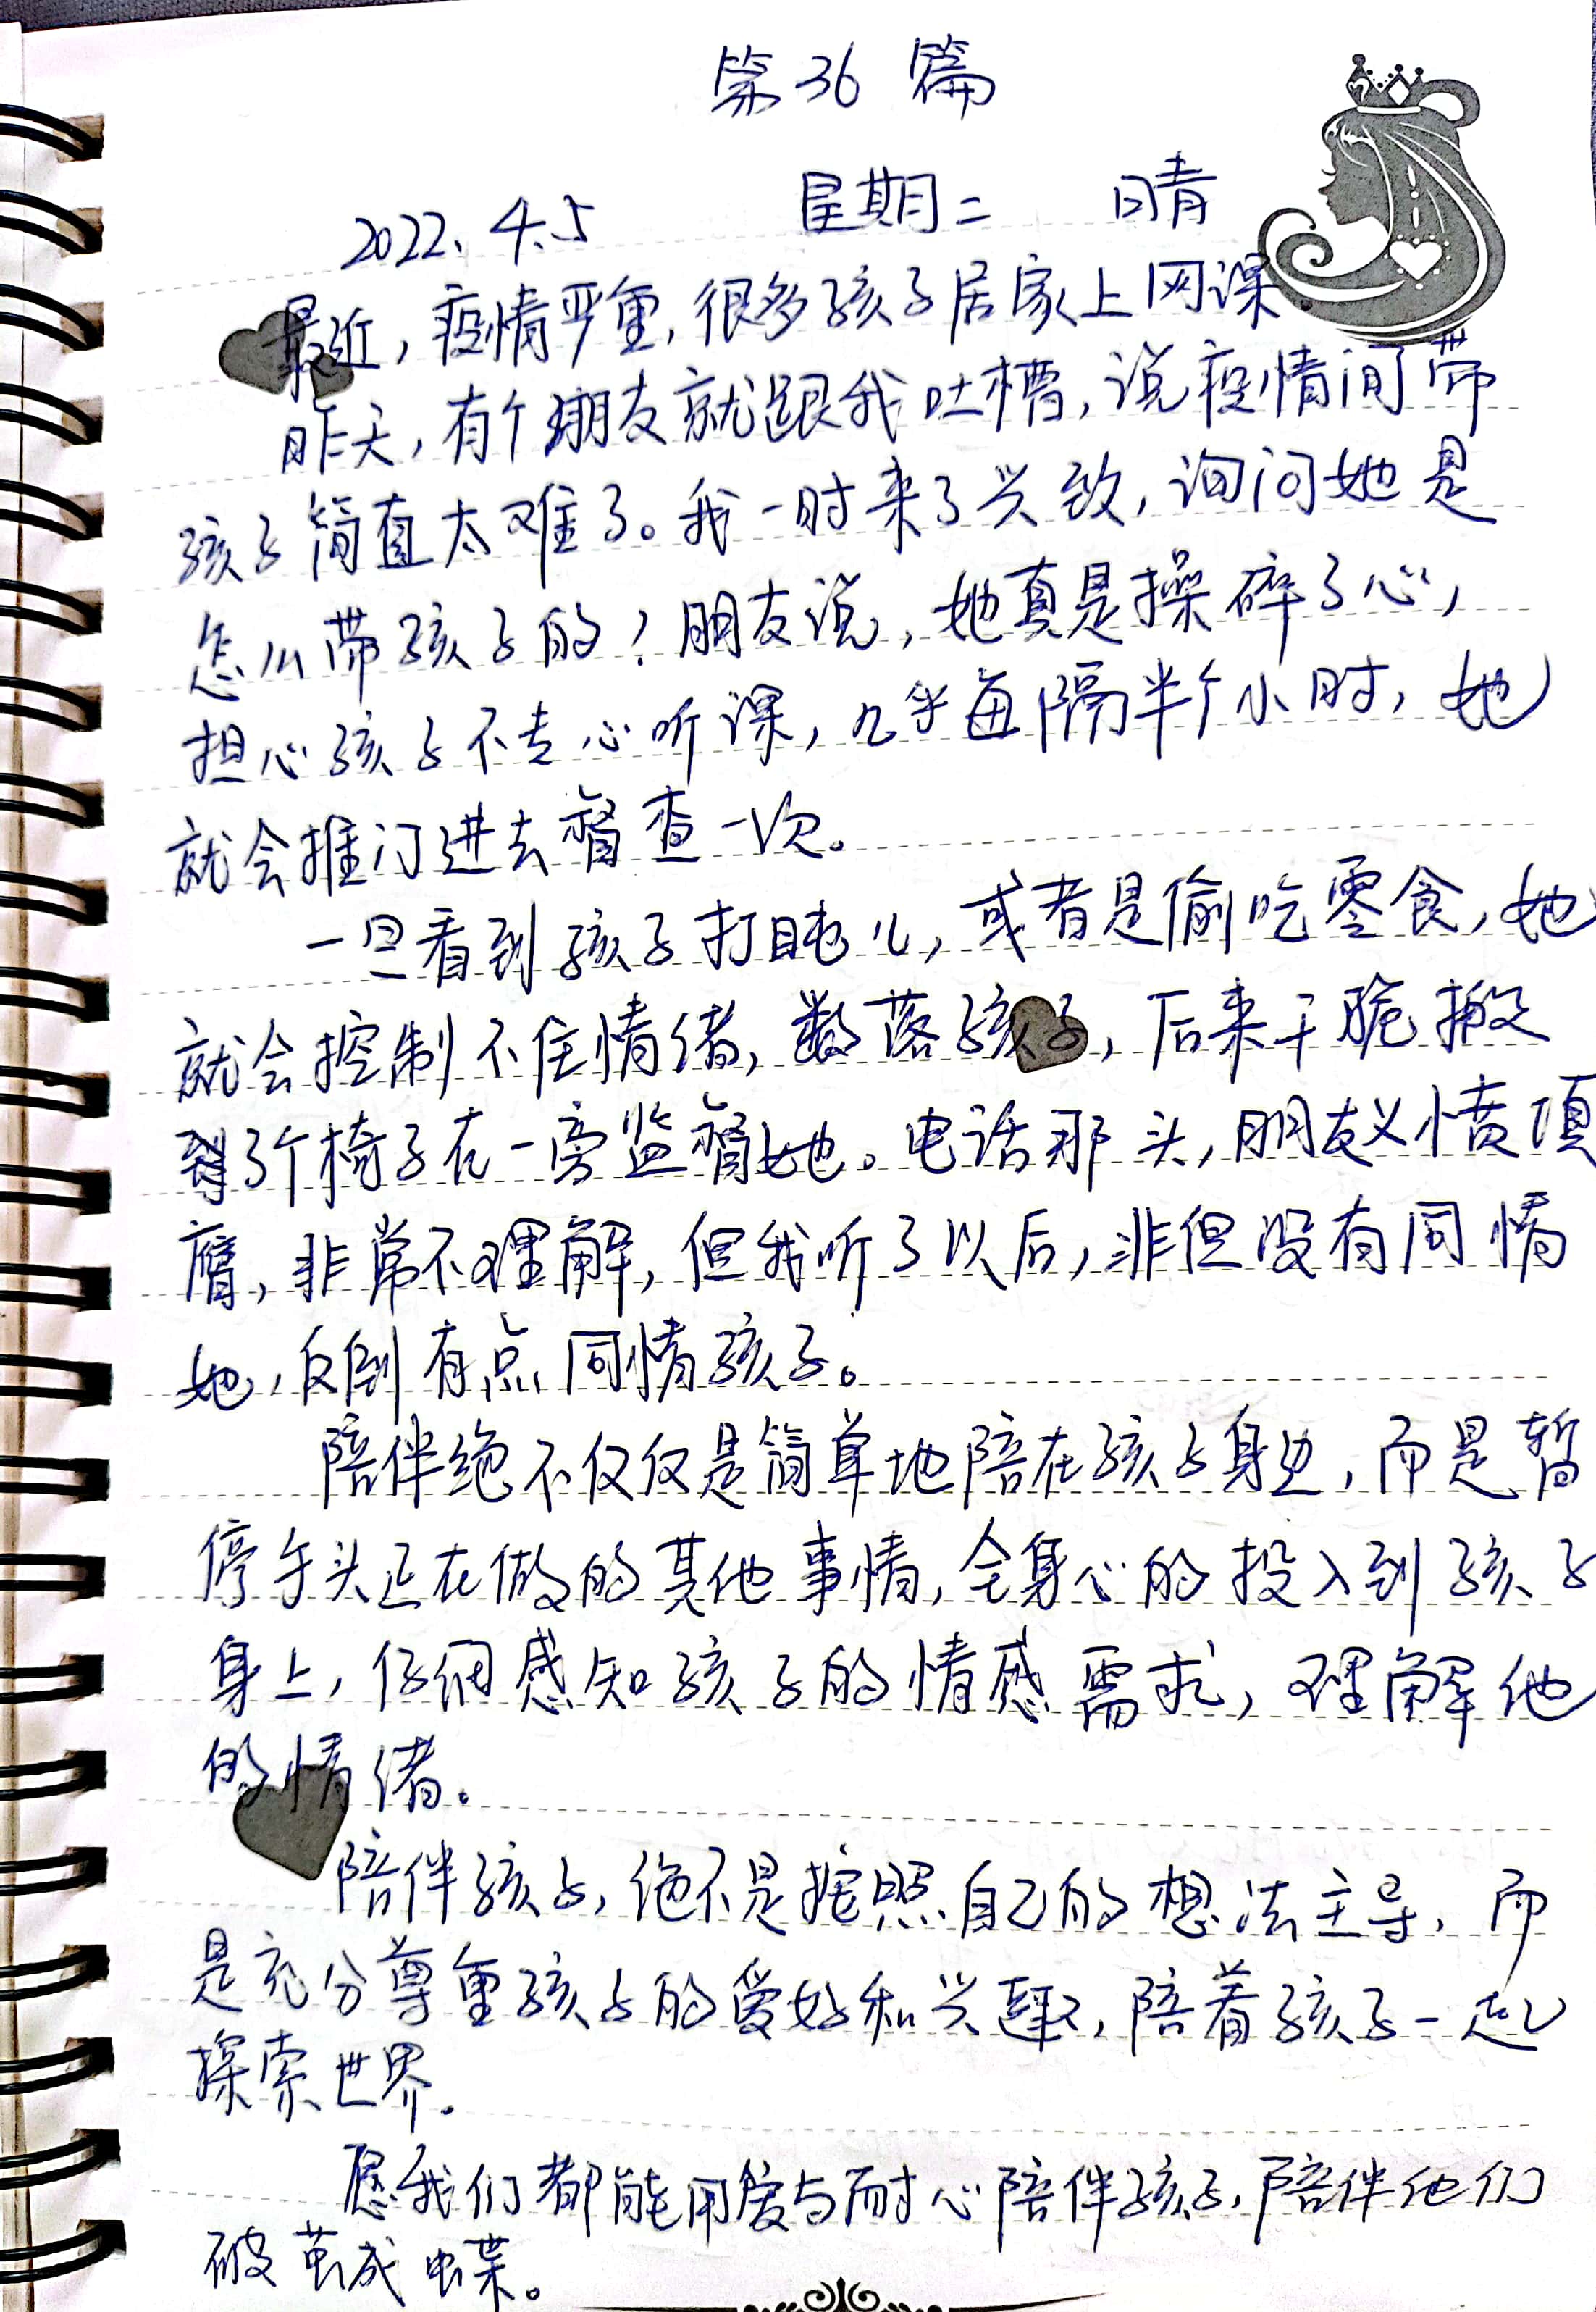 第36篇
2022.4.5 星期二 晴
最近，疫情严重，很多孩子居家上网课
昨天，有个朋友就跟我吐槽，说疫情间带
孩子简直太难了。我一时来了兴致，询问她是
怎么带孩子的？朋友说，她真是操碎了心，
担心孩子不专心听课，几乎每隔半个小时，她
就会推门进去督查一次。
一旦看到孩子打盹儿，或者是偷吃零食，她
就会控制不住情绪，数落孩子，后来干脆搬
到了个椅子在一旁监督她。电话那头，朋友义愤填
膺，非常不理解，但我听了以后，非但没有同情
她，反倒有点同情孩子。
陪伴绝不仅仅是简单地陪在孩子身边，而是暂
停手头正在做的其他事情，全身心的投入到孩子
身上，仔细感知孩子的情感需求，理解他
的情绪。
陪伴孩子，绝不是按照自己的想法主导，而
是充分尊重孩子的爱好和兴趣，陪着孩子一起
探索世界。
愿我们都能用爱与耐心陪伴孩子，陪伴他们
破茧成蝶。